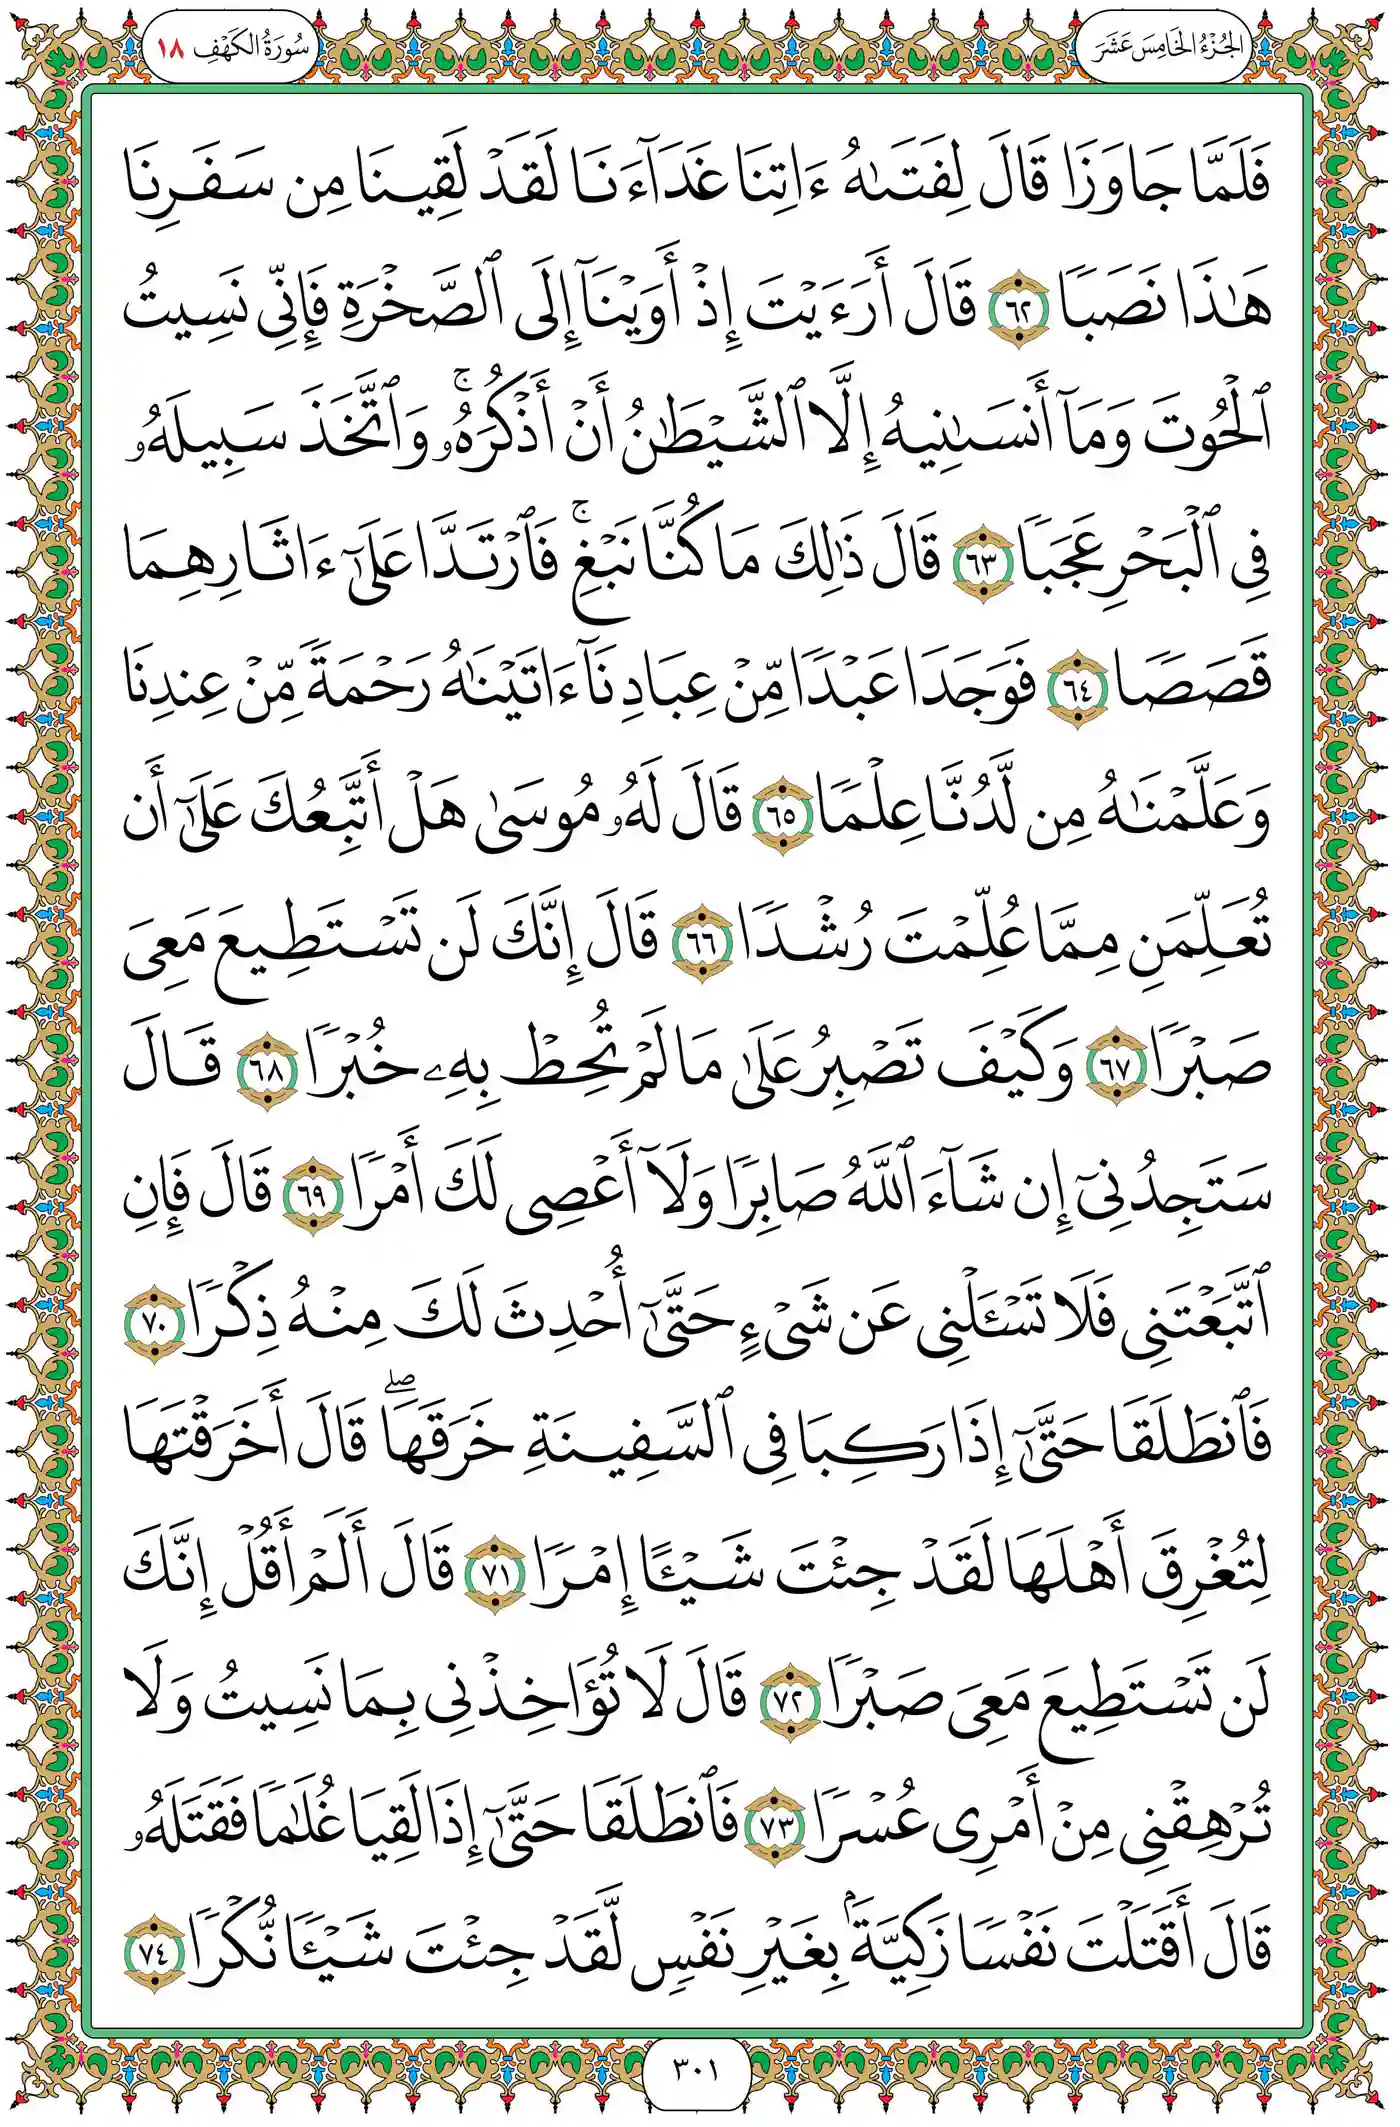 الجُزْءُ الخَامِسَ عَشَرَ
سُورَةُ الكَهْفِ ١٨
فَلَمَّا جَاوَزَا قَالَ لِفَتَىٰهُ ءَاتِنَا غَدَآءَنَا لَقَدْ لَقِينَا مِن سَفَرِنَا
هَٰذَا نَصَبًا ٦٢ قَالَ أَرَءَيْتَ إِذْ أَوَيْنَآ إِلَى ٱلصَّخْرَةِ فَإِنِّى نَسِيتُ
ٱلْحُوتَ وَمَآ أَنسَىٰنِيهُ إِلَّا ٱلشَّيْطَٰنُ أَنْ أَذْكُرَهُۥ ۚ وَٱتَّخَذَ سَبِيلَهُۥ
فِى ٱلْبَحْرِ عَجَبًا ٦٣ قَالَ ذَٰلِكَ مَا كُنَّا نَبْغِ ۚ فَٱرْتَدَّا عَلَىٰٓ ءَاثَارِهِمَا
قَصَصًا ٦٤ فَوَجَدَا عَبْدًا مِّنْ عِبَادِنَآ ءَاتَيْنَٰهُ رَحْمَةً مِّنْ عِندِنَا
وَعَلَّمْنَٰهُ مِن لَّدُنَّا عِلْمًا ٦٥ قَالَ لَهُۥ مُوسَىٰ هَلْ أَتَّبِعُكَ عَلَىٰٓ أَن
تُعَلِّمَنِ مِمَّا عُلِّمْتَ رُشْدًا ٦٦ قَالَ إِنَّكَ لَن تَسْتَطِيعَ مَعِىَ
صَبْرًا ٦٧ وَكَيْفَ تَصْبِرُ عَلَىٰ مَا لَمْ تُحِطْ بِهِۦ خُبْرًا ٦٨ قَالَ
سَتَجِدُنِىٓ إِن شَآءَ ٱللَّهُ صَابِرًا وَلَآ أَعْصِى لَكَ أَمْرًا ٦٩ قَالَ فَإِنِ
ٱتَّبَعْتَنِى فَلَا تَسْـَٔلْنِى عَن شَىْءٍ حَتَّىٰٓ أُحْدِثَ لَكَ مِنْهُ ذِكْرًا ٧٠
فَٱنطَلَقَا حَتَّىٰٓ إِذَا رَكِبَا فِى ٱلسَّفِينَةِ خَرَقَهَا ۖ قَالَ أَخَرَقْتَهَا
لِتُغْرِقَ أَهْلَهَا لَقَدْ جِئْتَ شَيْـًٔا إِمْرًا ٧١ قَالَ أَلَمْ أَقُلْ إِنَّكَ
لَن تَسْتَطِيعَ مَعِىَ صَبْرًا ٧٢ قَالَ لَا تُؤَاخِذْنِى بِمَا نَسِيتُ وَلَا
تُرْهِقْنِى مِنْ أَمْرِى عُسْرًا ٧٣ فَٱنطَلَقَا حَتَّىٰٓ إِذَا لَقِيَا غُلَٰمًا فَقَتَلَهُۥ
قَالَ أَقَتَلْتَ نَفْسًا زَكِيَّةًۢ بِغَيْرِ نَفْسٍ لَّقَدْ جِئْتَ شَيْـًٔا نُّكْرًا ٧٤
٣٠١